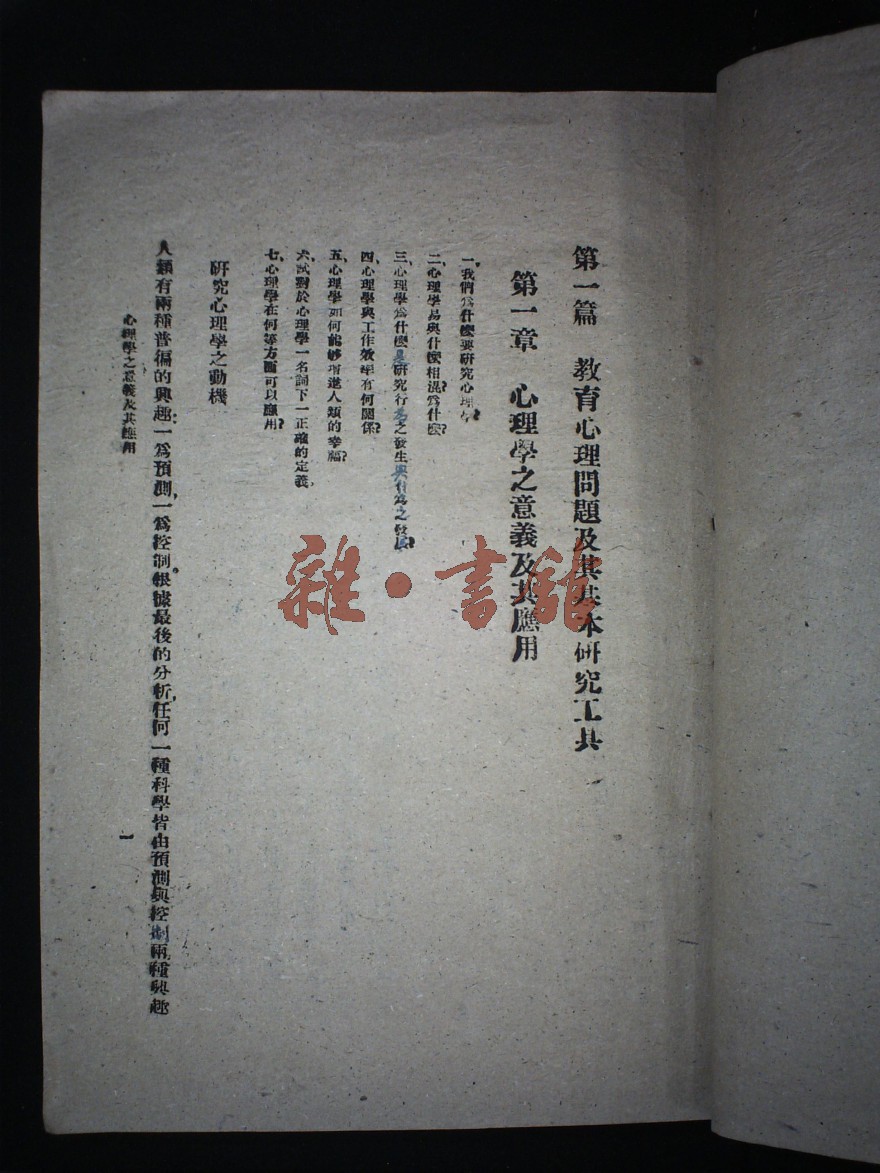 第一篇 教育心理問題及其基本研究工具
第一章 心理學之意義及其應用
一、我們爲什麼要研究心理學?
二、心理學易與什麼相混?爲什麼?
三、心理學爲什麼是研究行爲之發生與行爲之發展?
四、心理學與工作效率有何關係?
五、心理學如何能够增進人類的幸福?
六、試對於心理學一名詞下一正確的定義。
七、心理學在何等方面可以應用?
研究心理學之動機
人類有兩種普徧的興趣:一爲預測,一爲控制。根據最後的分析,任何一種科學皆由預測與控制兩種興趣
心理學之意義及其應用
一
雜·書館